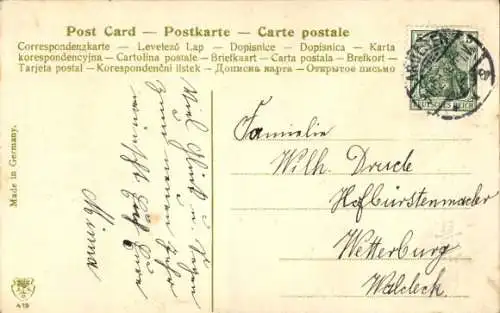 Post Card – Postkarte – Carte postale
Correspondenzkarte – Levelező Lap – Dopisnice – Dopisnica – Karta
korespondencyjna – Cartolina postale – Briefkaart – Carta postala – Brefkort –
Tarjeta postal – Korespondenční lístek – Дописна карта – Открытое письмо
DEUTSCHES REICH
Viel Glück u. Segen
zum neuen Jahr
wünscht Euch Eure
Minna
Familie
Wilh. Drude
Hofbürstenmacher
Wetterburg
Waldeck
Made in Germany.
419